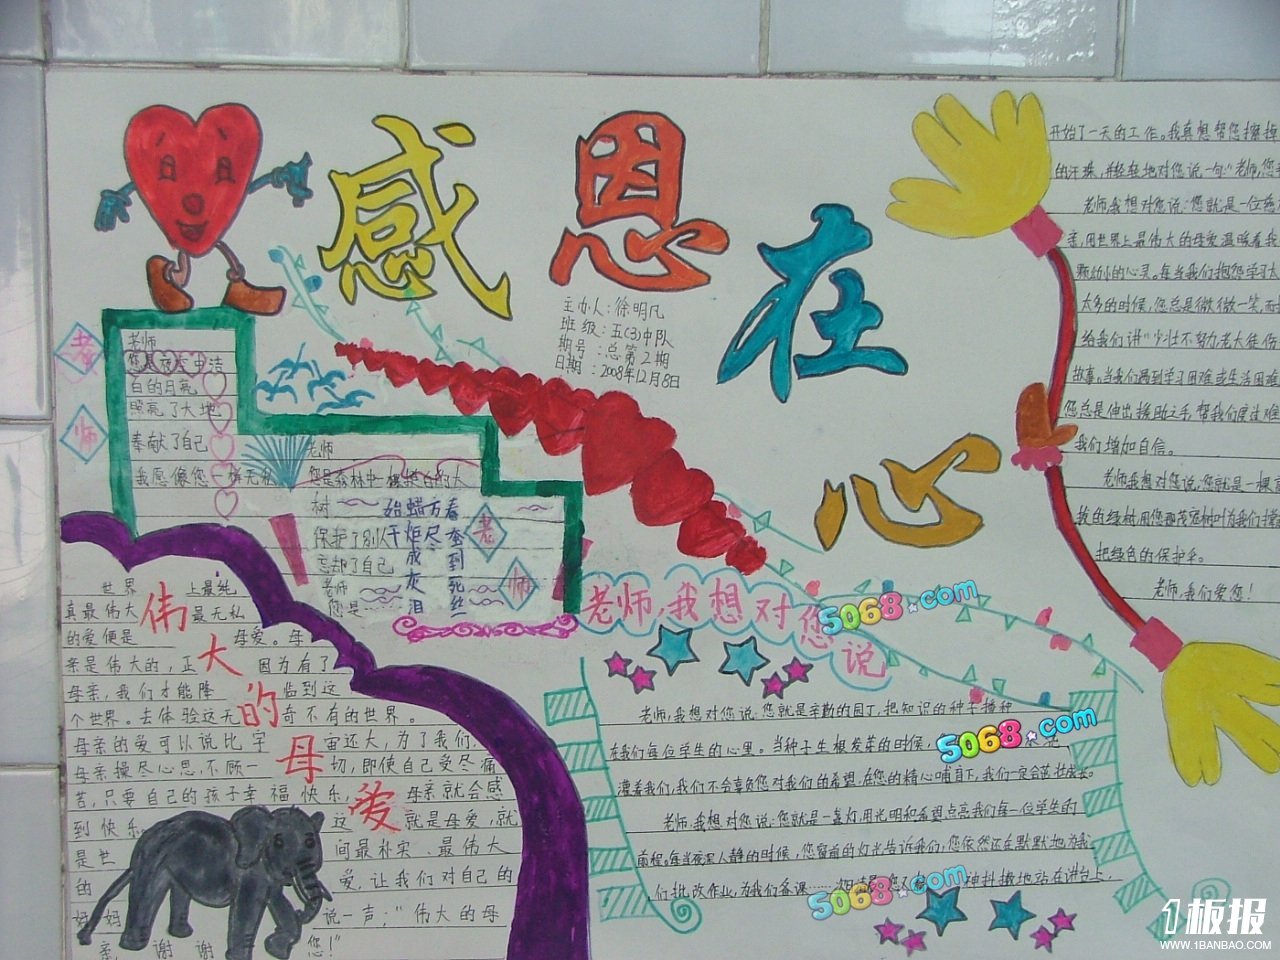 感恩在心
主办人:徐明凡
班级:五(3)中队
期号:总第2期
日期:2008年12月8日
老师
老师
您是夜空中洁
白的月亮
照亮了大地
奉献了自己
我愿像您一样无私
老师
您是森林中一棵挺白的大
树
保护了别人
忘却了自己
老师
您是……
春蚕到死丝方尽
蜡炬成灰泪始干
老师
伟大的母爱
世界上最纯
真最伟大最无私
的爱便是母爱。母
亲是伟大的,正因为有了
母亲,我们才能降临到这
个世界。去体验这无奇不有的世界。
母亲的爱可以说比宇宙还大,为了我们,
母亲操尽心思,不顾一切,即使自己受尽痛
苦,只要自己的孩子幸福快乐,母亲就会感
到快乐。这就是母爱,就
是世间最朴实、最伟大
的爱,让我们对自己的
妈妈说一声:“伟大的母
亲,谢谢您!”
老师,我想对您说
老师,我想对您说:您就是辛勤的园丁,把知识的种子播种
在我们每位学生的心里。当种子生根发芽的时候,
灌着我们,我们不会辜负您对我们的希望,在您的精心哺育下,我们一定会茁壮成长。
老师,我想对您说:您就是一盏灯,用光明和希望点亮我们每一位学生的
前程。每当夜深人静的时候,您窗前的灯光告诉我们,您依然还在默默地为我
们批改作业,为我们备课……次日清晨,您又精神抖擞地站在讲台上,
开始了一天的工作。我真想帮您擦掉
的汗珠,并轻轻地对您说一句:“老师,您
老师,我想对您说:您就是一位慈
亲,用世界上最伟大的母爱温暖着我
颗幼小的心灵。每当我们抱怨学习太
太多的时候,您总是微微一笑,而
给我们讲“少壮不努力,老大徒伤
故事。当我们遇到学习困难或生活困难
您总是伸出援助之手,帮我们度过难
我们增加自信。
老师,我想对您说:您就是一棵
我的绿树,用您那茂密的树叶为我们撑
把绿色的保护伞。
老师,我们爱您!
5068.com
5068.com
5068.com
1板报
WWW.1BANBAO.COM